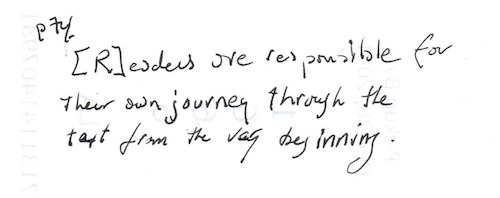 p 74.
[R]eaders are responsible for
their own journey through the
text from the very beginning.